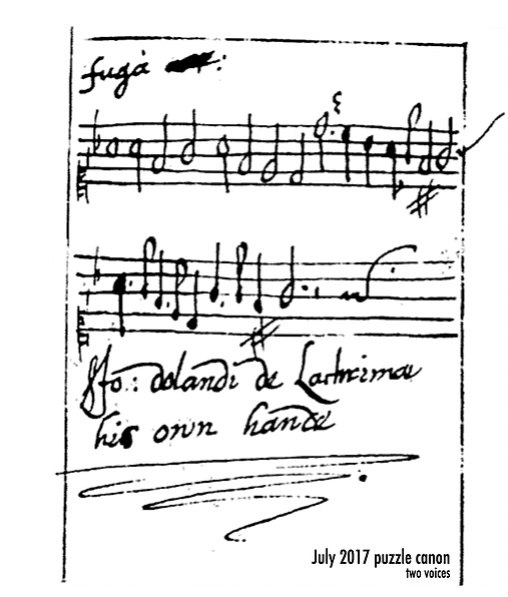 fugà
Jo: dolandi de Lachrimae
his own hande
July 2017 puzzle canon
two voices